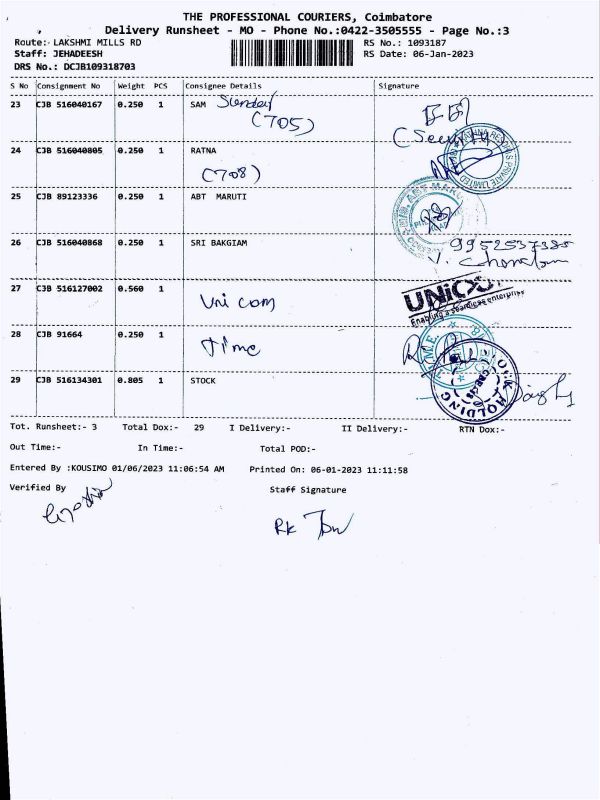 THE PROFESSIONAL COURIERS, Coimbatore
Delivery Runsheet - MO - Phone No.:0422-3505555 - Page No.:3
Route:- LAKSHMI MILLS RD RS No.: 1093187
Staff: JEHADEESH RS Date: 06-Jan-2023
DRS No.: DCJB109318703
S No Consignment No Weight PCS Consignee Details Signature
23 CJB 516040167 0.250 1 SAM
(705)
24 CJB 516040805 0.250 1 RATNA
(708)
PRIVATE LIMITED
25 CJB 89123336 0.250 1 ABT MARUTI
26 CJB 516040868 0.250 1 SRI BAKGIAM
27 CJB 516127002 0.560 1 Uni com
UNICO
Enabling a seamless enterprise
28 CJB 91664 0.250 1 Time
29 CJB 516134301 0.805 1 STOCK
Tot. Runsheet:- 3 Total Dox:- 29 I Delivery:- II Delivery:- RTN Dox:-
Out Time:- In Time:- Total POD:-
Entered By :KOUSIMO 01/06/2023 11:06:54 AM Printed On: 06-01-2023 11:11:58
Verified By Staff Signature